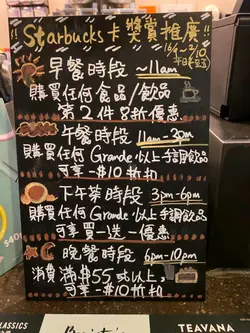 Starbucks 卡獎賞推廣!!
早餐時段 ~11am
購買任何食品/飲品
第2件8折優惠
午餐時段 11am-3pm
購買任何 Grande 以上手調飲品
可享一$10折扣
下午茶時段 3pm-6pm
購買任何 Grande 以上手調飲品
可享買一送一優惠
晚餐時段 6pm-10pm
消費滿$55或以上,
可享一$10折扣
CLASSICS
TEAVANA